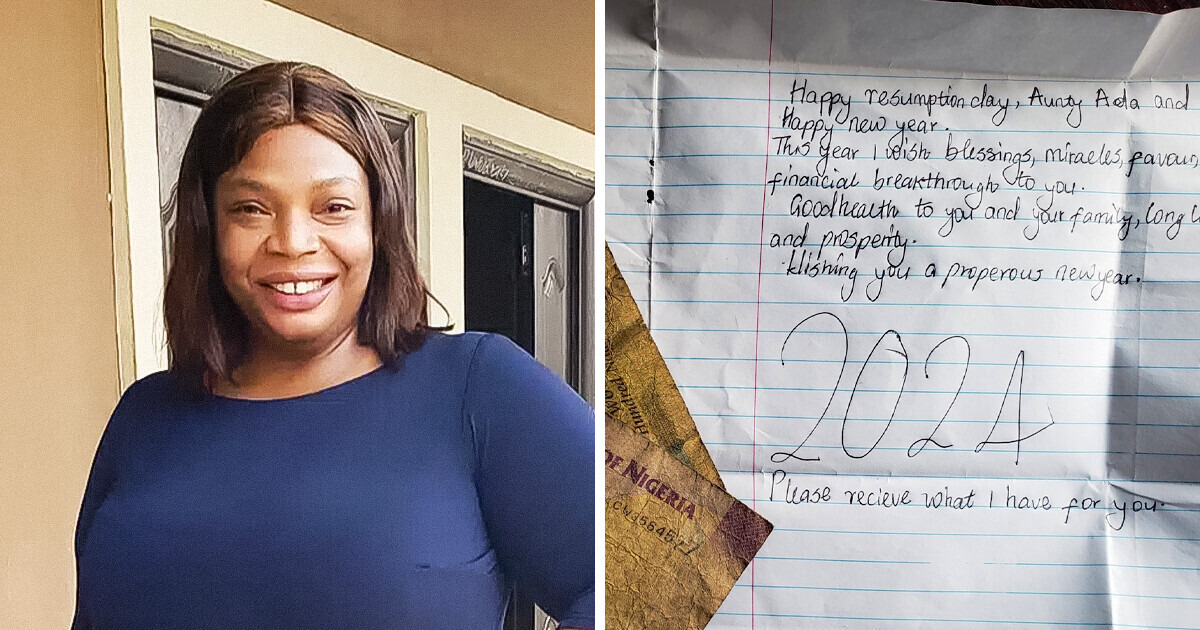 Happy resumption day, Aunty Ada and
Happy new year.
This year I wish blessings, miracles, favour,
financial breakthrough to you.
Good health to you and your family, long
and prosperity.
Wishing you a properous new year.
2024
Please recieve what I have for you.
Hundred
OF NIGERIA